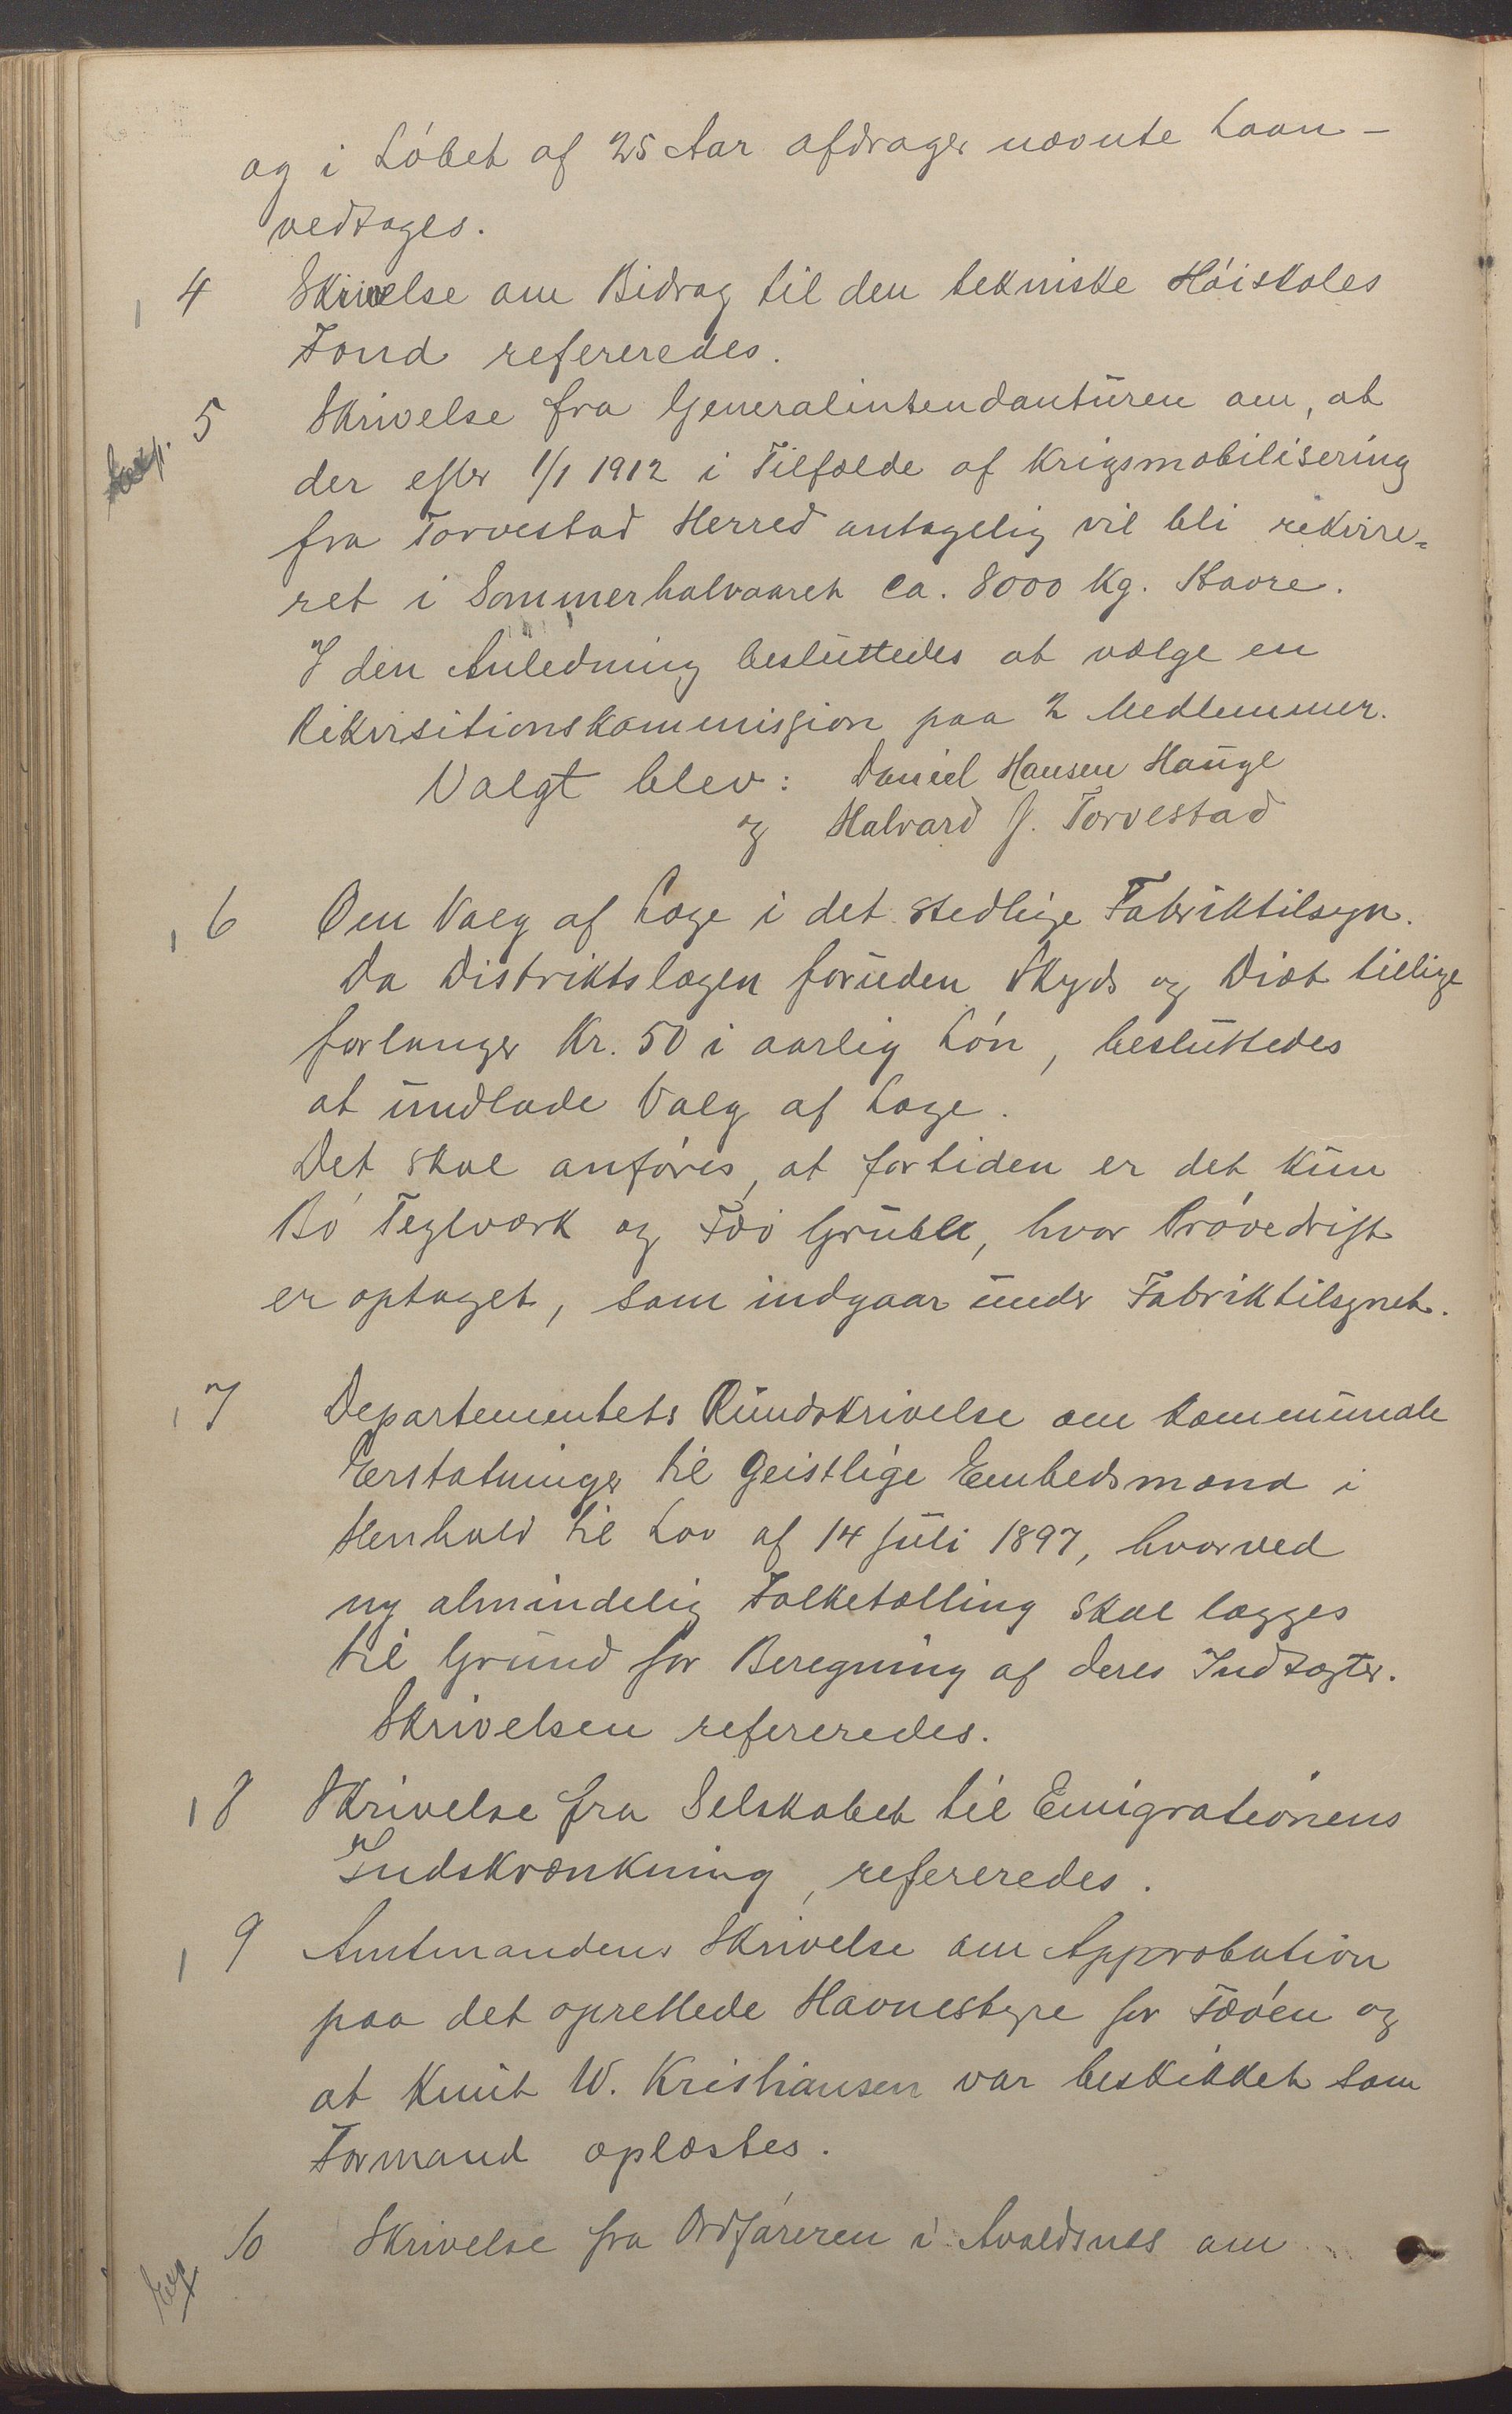 og i Løbet af 25 Aar afdrager nævnte Laan –
vedtages.
4 Skrivelse om Bidrag til den tekniske Høiskoles
Fond refereredes.
5 Skrivelse fra Generalintendanturen om, at
der efter 1/1 1912 i Tilfælde af Krigsmobilisering
fra Torvestad Herred antagelig vil bli rekvire=
ret i Sommerhalvaaret ca. 8000 Kg. Havre.
I den Anledning besluttedes at vælge en
Rekvisitionskommission paa 2 Medlemmer.
Valgt blev: Daniel Hansen Hauge
og Halvard J. Torvestad
6 Om Valg af Læge i det stedlige Fabriktilsyn.
Da Distriktslægen foruden Skyds og Diæt tillige
forlanger Kr. 50 i aarlig Løn, besluttedes
at undlade Valg af Læge.
Det skal anføres, at fortiden er det kun
Bø Teglværk og Feø Grube, hvor Prøvedrift
er optaget, som indgaar under Fabriktilsynet.
7 Departementets Rundskrivelse om kommunale
Erstatninger til geistlige Embedsmænd i
Henhold til Lov af 14 Juli 1897, hvorved
ny almindelig Folketælling skal lægges
til Grund for Beregning af deres Indtægter.
Skrivelsen refereredes.
8 Skrivelse fra Selskabet til Emigrationens
Indskrænkning, refereredes.
9 Amtmandens Skrivelse om Approbation
paa det oprettede Havnestyre for Feøen og
at Knut W. Kristiansen var beskikket som
Formand oplæstes.
10 Skrivelse fra Ordføreren i Avaldsnes om